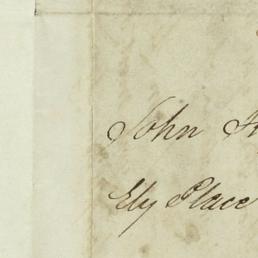 John
Ely Place